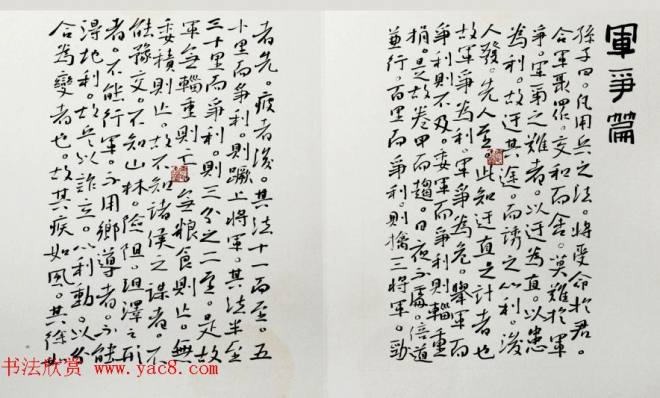 軍爭篇
孫子曰。凡用兵之法。將受命於君。
合軍聚眾。交和而舍。莫難於軍
爭。軍爭之難者。以迂為直。以患
為利。故迂其途。而誘之以利。後
人發。先人至。此知迂直之計者也
故軍爭為利。軍爭為危。舉軍而
爭利則不及。委軍而爭利則輜重
捐。是故卷甲而趨。日夜不處。倍道
兼行。百里而爭利。則擒三將軍。勁
者先。疲者後。其法十一而至。五
十里而爭利。則蹶上將軍。其法半至
三十里而爭利。則三分之二至。是故
軍無輜重則亡。無糧食則亡。無
委積則亡。故不知諸侯之謀者。不
能豫交。不知山林。險阻。沮澤之形
者。不能行軍。不用鄉導者。不能
得地利。故兵以詐立。以利動。以分
合為變者也。故其疾如風。其徐如
书法欣赏 www.yac8.com